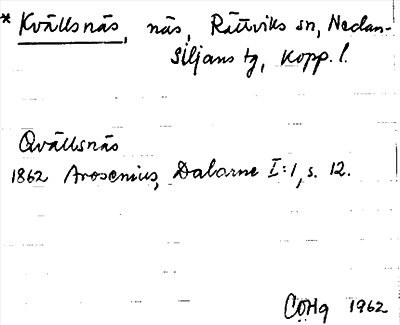 * Kvällsnäs, näs, Rättviks sn, Nedan-
Siljans tg, Kopp. l.
Qvällsnäs
1862 Arosenius, Dalarne I:1, s. 12.
COHg 1962